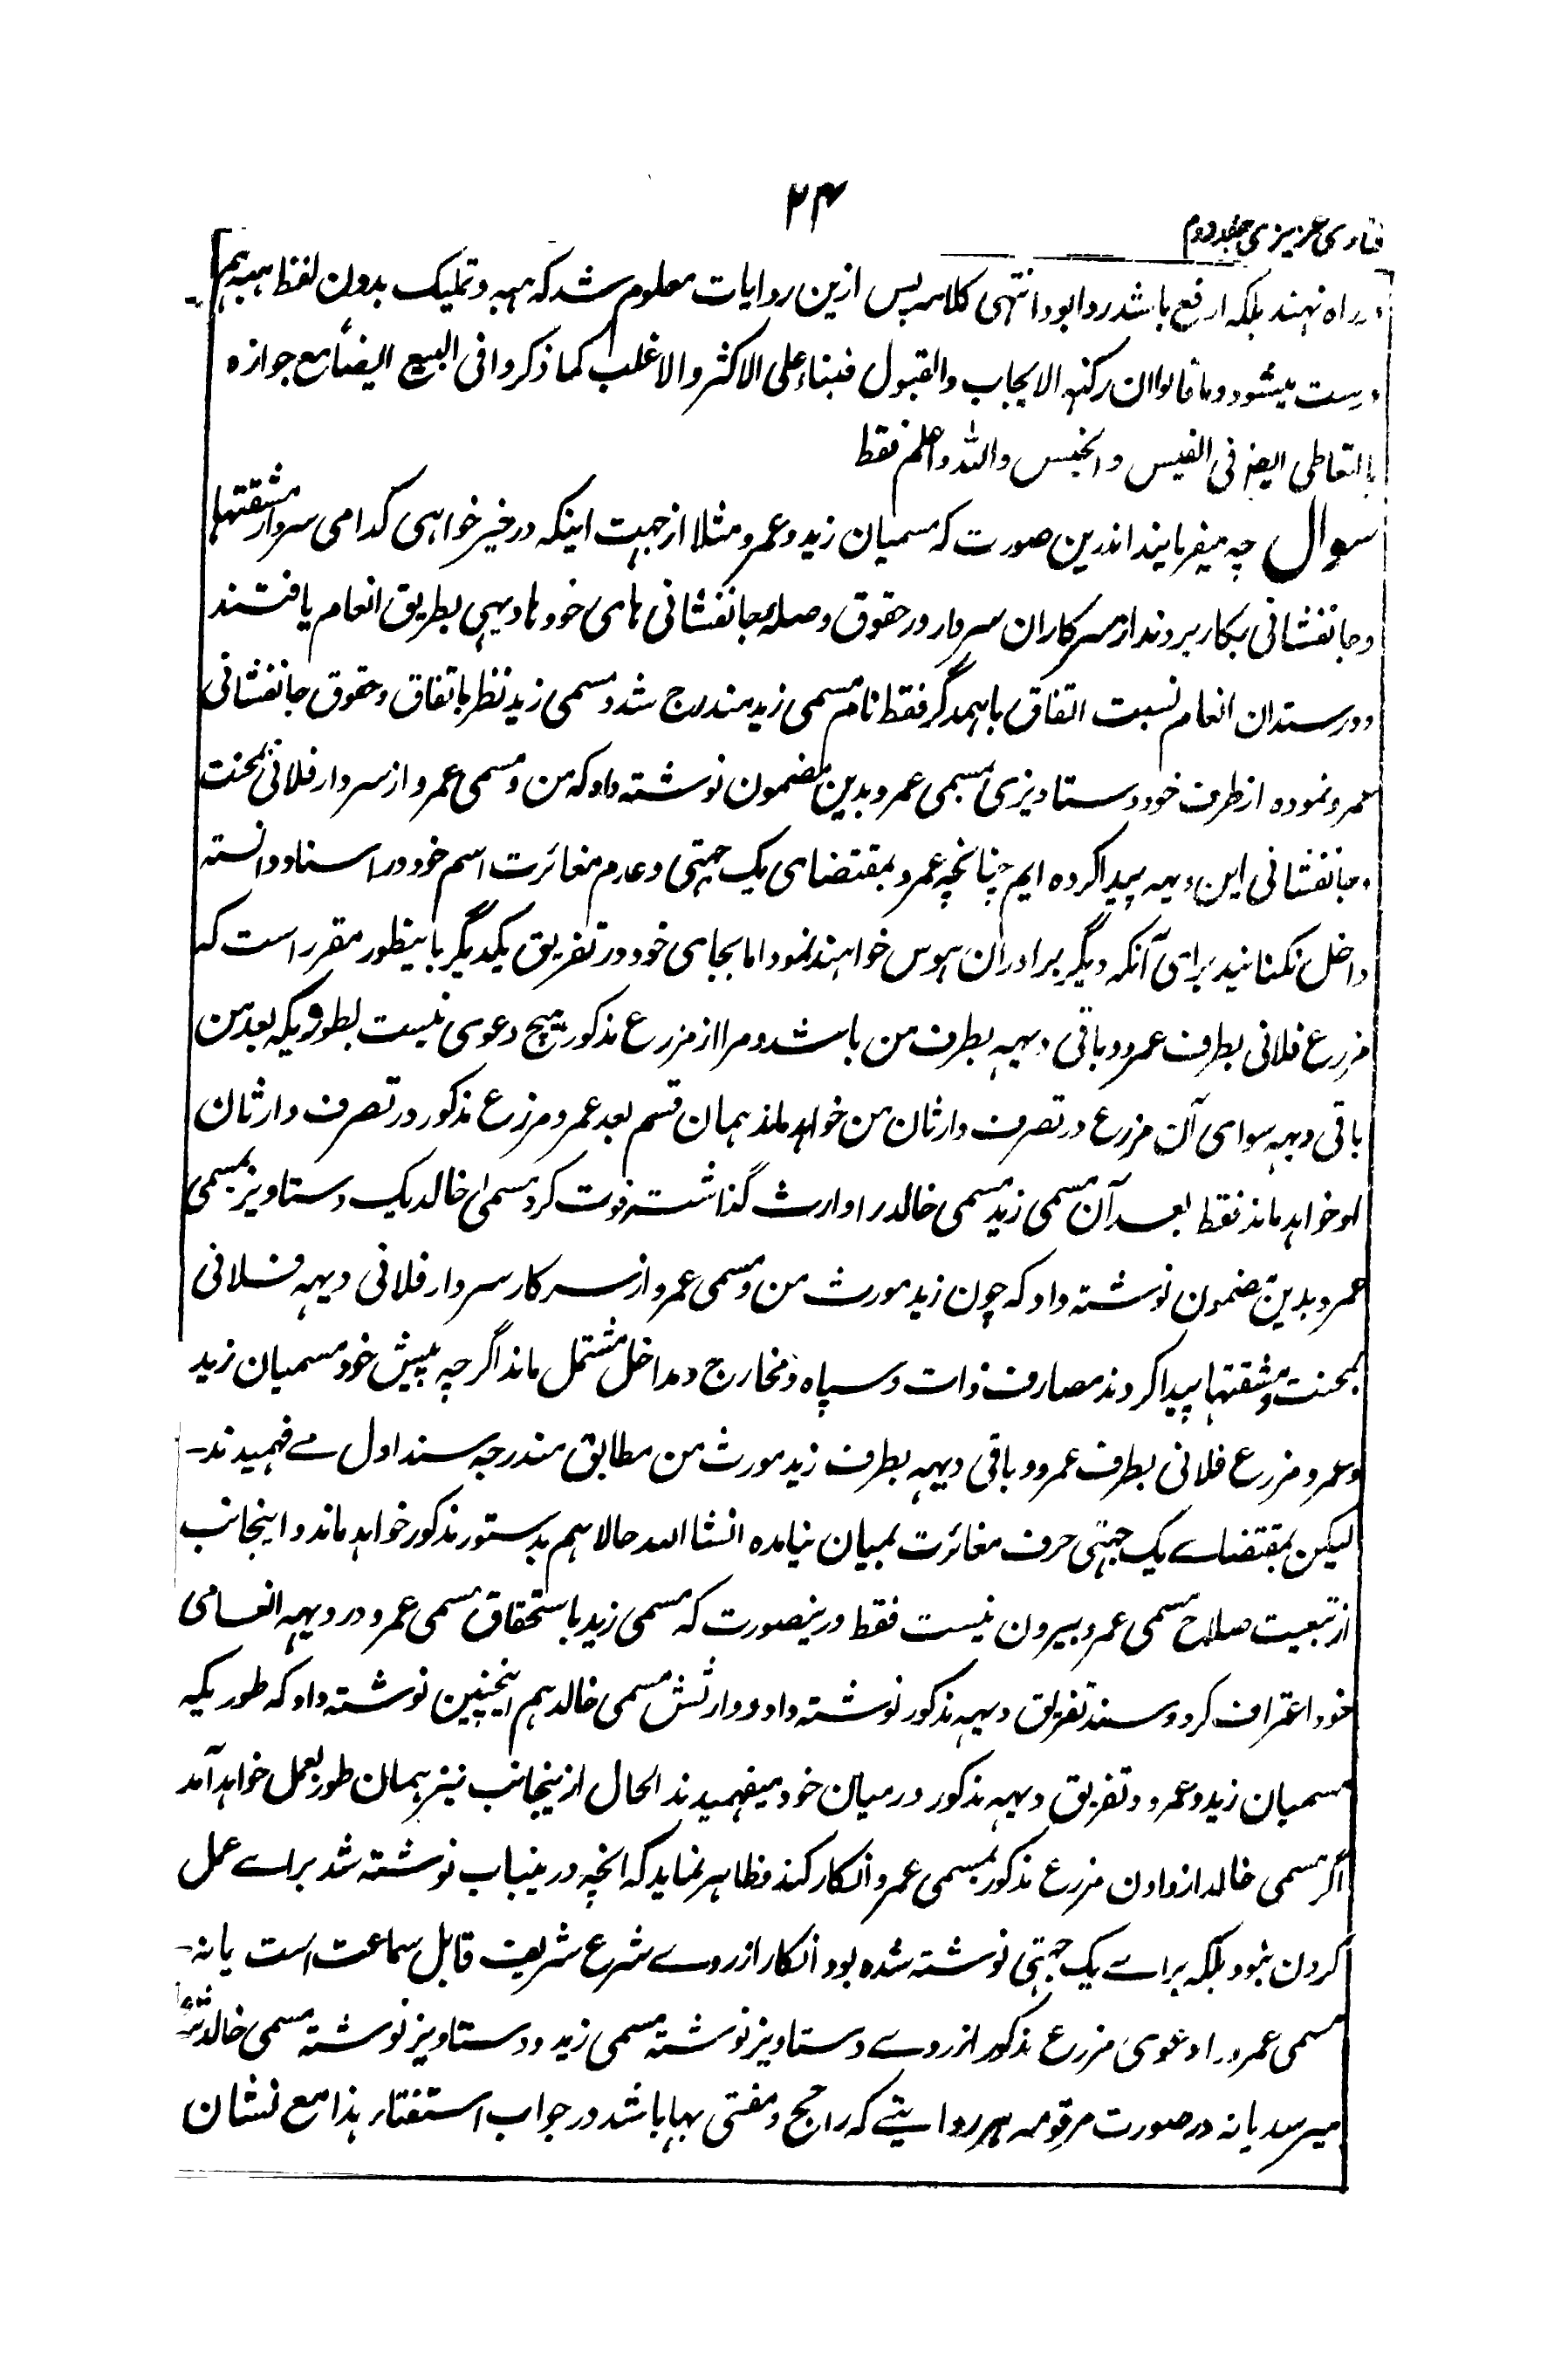 ۲۴
فتاوی عزیزی جلد دوم
در راه نهند بلکه ارفع باشد روا بود انتهی کلامه پس ازین روایات معلوم شد که هبه و تملیک بدون لفظ هبه هم
درست میشود و ما قالوا ان رکنها الایجاب والقبول فبناء علی الاکثر والاغلب کما ذکروا فی البیع ایضاً مع جوازه
بالتعاطی ایضا فی النفیس والخسیس والله اعلم فقط
سوال چه میفرمایند اندرین صورت که مسمیان زید و عمرو مثلا از جهت اینکه در خیر خواهی کدامی سردار مشقتها
و جانفشانی بکار بردند از سرکاران سردار در حقوق و صلهٔ جانفشانی های خودها دیهی بطریق انعام یافتند
و در سند آن انعام نسبت اتفاق باهمدگر فقط نام مسمی زید مندرج شد و مسمی زید نظر باتفاق و حقوق جانفشانی
عمرو نموده از طرف خود دستاویزی بمسمی عمرو بدین مضمون نوشته داد که من و مسمی عمرو از سردار فلانی بمحنت
و جانفشانی این دیهه پیدا کرده ایم چنانچه عمرو بمقتضای یک جهتی و عدم مغائرت اسم خود در اسناد دانسته
داخل نکنانید برای آنکه دیگر برادران هوس خواهند نمود اما بجای خود در تفریق یکدیگر باینطور مقرر است که
مزرع فلانی بطرف عمرو و باقی دیهه بطرف من باشد و مرا از مزرع مذکور هیچ دعوی نیست بطوریکه بعد من
باقی دیهه سوای آن مزرع در تصرف وارثان من خواهد ماند همان قسم بعد عمرو مزرع مذکور در تصرف وارثان
او خواهد ماند فقط بعد آن مسمی زید مسمی خالد را وارث گذاشته فوت کرد مسمی خالد یک دستاویز بمسمی
عمرو بدین مضمون نوشته داد که چون زید مورث من و مسمی عمرو از سرکار سردار فلانی دیهه فلانی
بمحنت و مشقتها پیدا کردند مصارف ذات و سپاه و مخارج و مداخل مشتمل ماند اگرچه پیش خود مسمیان زید
و عمرو مزرع فلانی بطرف عمرو و باقی دیهه بطرف زید مورث من مطابق مندرجه سند اول مے فهمیدند
لیکن بمقتضاے یک جهتی حرف مغائرت بمیان نیامده انشا الله حالا هم بدستور مذکور خواهد ماند و اینجانب
از تبعیت صلاح مسمی عمرو بیرون نیست فقط درینصورت که مسمی زید باستحقاق مسمی عمرو در دیهه انعامی
خود اعتراف کرد و سند تفریق دیهه مذکور نوشته داد و وارثش مسمی خالد هم اینچنین نوشته داد که طوریکه
مسمیان زید و عمرو و تفریق دیهه مذکور درمیان خود میفهمیدند الحال ازینجانب نیز همان طور بعمل خواهد آمد
اگر مسمی خالد از دادن مزرع مذکور بمسمی عمرو انکار کند و ظاهر نماید که انچه درینباب نوشته شد براے عمل
کردن نبود بلکه براے یک جهتی نوشته شده بود انکار از روے شرع شریف قابل سماعت است یا نه
مسمی عمرو را دعوی مزرع مذکور از روے دستاویز نوشته مسمی زید و دستاویز نوشته مسمی خالد شرعا
میرسد یا نه در صورت مرقومه هر روایتے که راجح و مفتی بها باشد در جواب استفتاء هذا مع نشان